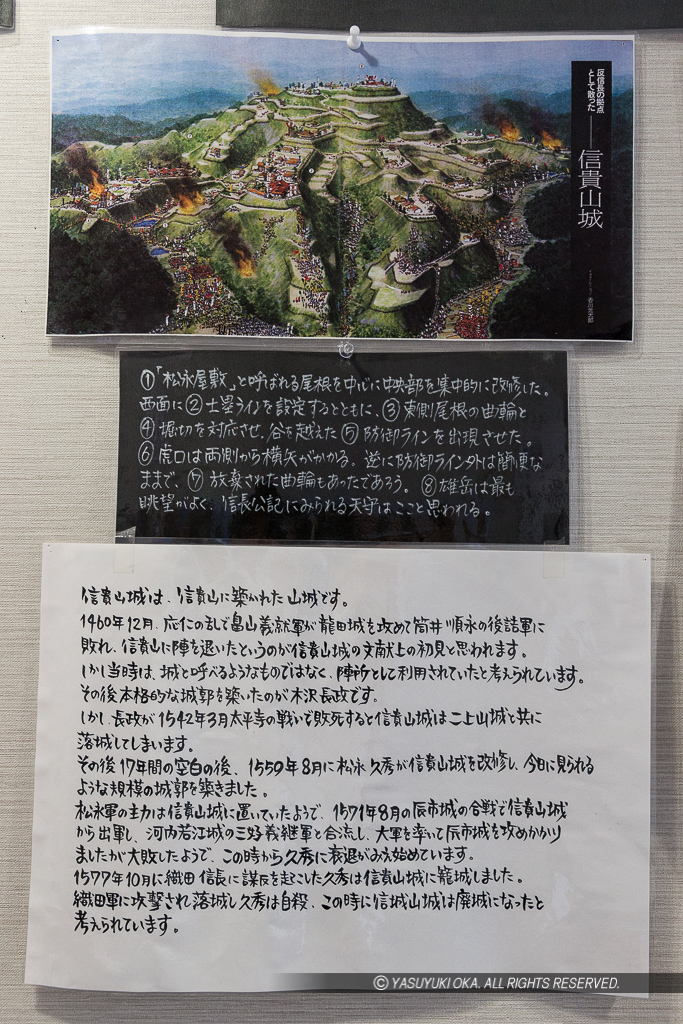 反信長の拠点
として散った
信貴山城
①「松永屋敷」と呼ばれる尾根を中心に中央部を集中的に改修した。
西面に②土塁ラインを設定するとともに、③東側尾根の曲輪と
④堀切を対応させ、谷を越えた⑤防御ラインを出現させた。
⑥虎口は両側から横矢がかかる。逆に防御ライン外は簡便な
ままで、⑦放棄された曲輪もあったであろう。⑧雄岳は最も
眺望がよく、信長公記にみられる天守はここと思われる。
信貴山城は、信貴山に築かれた山城です。
1460年12月、応仁の乱で畠山義就軍が龍田城を攻めて筒井順永の後詰軍に
敗れ、信貴山に陣を退いたというのが信貴山城の文献上の初見と思われます。
しかし当時は、城と呼べるようなものではなく、陣所として利用されていたと考えられています。
その後本格的な城郭を築いたのが木沢長政です。
しかし、長政が1542年3月太平寺の戦いで敗死すると信貴山城は二上山城と共に
落城してしまいます。
その後17年間の空白の後、1559年8月に松永久秀が信貴山城を改修し、今日に見られる
ような規模の城郭を築きました。
松永軍の主力は信貴山城に置いていたようで、1571年8月の辰市城の合戦で信貴山城
から出軍し、河内若江城の三好義継軍と合流し、大軍を率いて辰市城を攻めかかり
ましたが大敗したようで、この時から久秀に衰退がみえ始めています。
1577年10月に織田信長に謀反を起こした久秀は信貴山城に籠城しました。
織田軍に攻撃され落城し久秀は自殺、この時に信城山城は廃城になったと
考えられています。
© YASUYUKI OKA. ALL RIGHTS RESERVED.